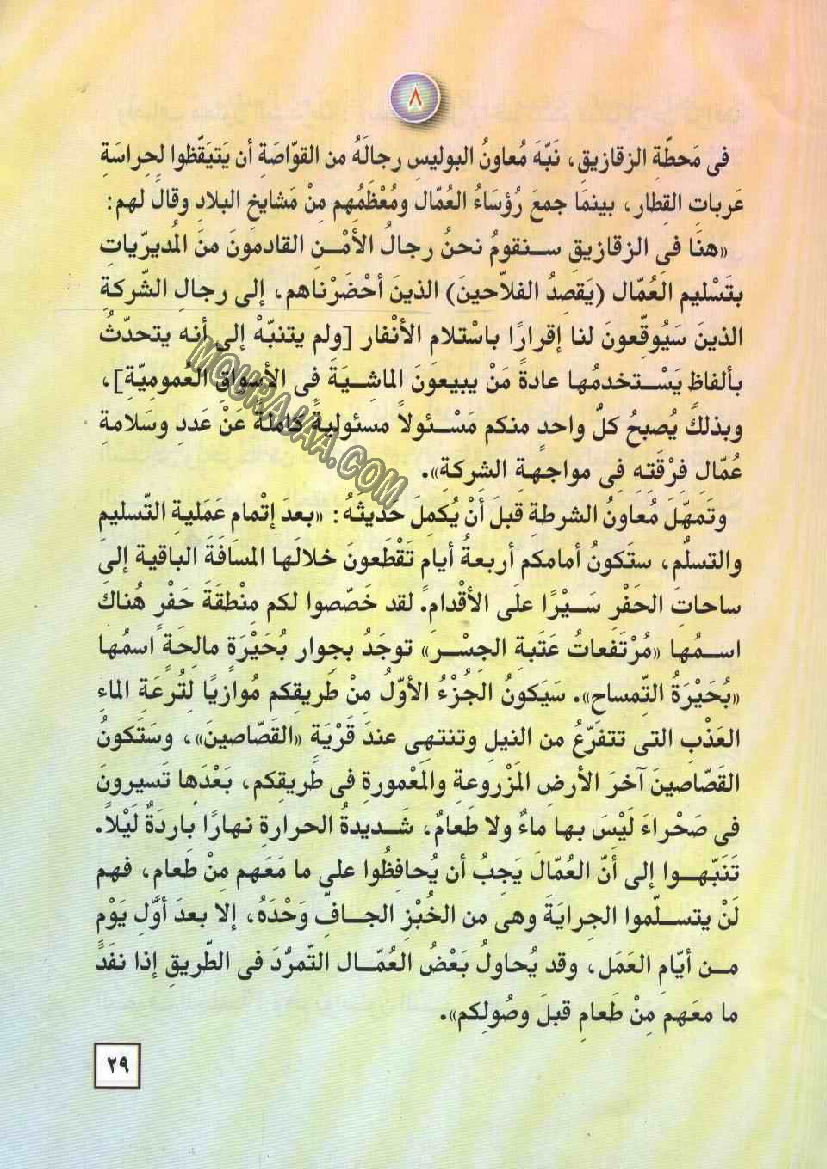 ٨
فى مَحطّةِ الزقازيق، نَبّهَ مُعاونُ البوليسِ رجالَهُ من القوّاصَةِ أن يَتيَقّظوا لحِراسَةِ
عَرباتِ القِطار، بينمَا جمعَ رُؤسَاءُ العُمّال ومُعْظَمُهم مِنْ مَشايخِ البلادِ وقالَ لهم:
«هنَا فى الزقازيقِ سـنقومُ نحنُ رجالُ الأمْـنِ القادمونَ منَ المُديرّيات
بتَسْليم العُمّال (يَقصِدُ الفلاّحينَ) الذينَ أحْضَرْناهم، إلى رجالِ الشّركة
الذينَ سَيُوقّعونَ لنا إقرارًا باسْتلامِ الأنْفار [ولم يتنبّهْ إلى أنه يتحدّثُ
بألفاظٍ يَسْـتخدمُها عادةً مَنْ يبيعونَ الماشِـيَةَ فى الأسْواقِ العُموميّةِ]،
وبذلكَ يُصبحُ كلُّ واحدٍ منكم مَسْـئولاً مسئوليةً كاملةً عنْ عَددِ وسَلامةِ
عُمّالِ فرْقَتِه فى مواجهةِ الشركةِ».
وتَمهّلَ مُعاونُ الشرطةِ قبلَ أنْ يُكمِلَ حَديثَهُ: «بعدَ إتْمامِ عَمَليةِ التّسليم
والتسلُم، ستَكونُ أمامكم أربعةُ أيامٍ تَقْطَعونَ خلالَها المسَافَةَ الباقيةَ إلىَ
ساحاتِ الحَفْر سَـيْرًا علَى الأقْدام. لقد خَصّصوا لكم مِنْطقَةَ حَفْرٍ هُناكَ
اسـمُها «مُرْتَفعاتُ عَتَبةِ الجسْـرَ» توجَدُ بجوارِ بُحَيْرَةٍ مالحَةٍ اسمُها
«بُحَيْرَةُ التّمساح». سَيكونُ الجُزْءُ الأوّلُ مِنْ طَريقِكم مُوازيًا لتُرعَةِ الماءِ
العَذْبِ التى تتفرّعُ من النيلِ وتنتهِى عندَ قَرْيَةِ «القَصّاصين»، وسَتكونُ
القَصّاصينَ آخرَ الأرضِ المَزْروعةِ والمَعْمورةِ فى طَريقِكم، بَعْدَها تَسيرونَ
فى صَحْراءَ لَيْسَ بها ماءٌ ولا طَعامٌ، شَـديدةُ الحرارةِ نهارًا باردَةٌ لَيْلاً.
تَنَبّهـوا إلى أنّ العُمّالَ يَجِبُ أن يُحافِظُوا على ما مَعَهم مِنْ طَعامٍ، فهم
لَنْ يتسـلّموا الجرايَةَ وهى من الخُبْزِ الجـافِ وَحْدَهُ، إلا بعدَ أوَّلِ يَوْمٍ
مـن أيّامِ العَمَل، وقد يُحاولُ بَعْضُ العُمّـال التّمرُدَ فى الطّريقِ إذا نفَدَ
ما معَهم مِنْ طَعامٍ قبلَ وصُولِكم».
٢٩
MOURAJAA.COM